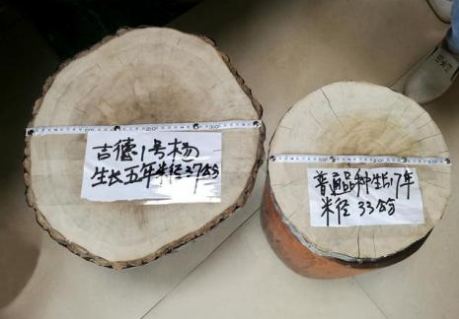 吉德1号杨
生长五年米径37公分
普通品种生长17年
米径33公分